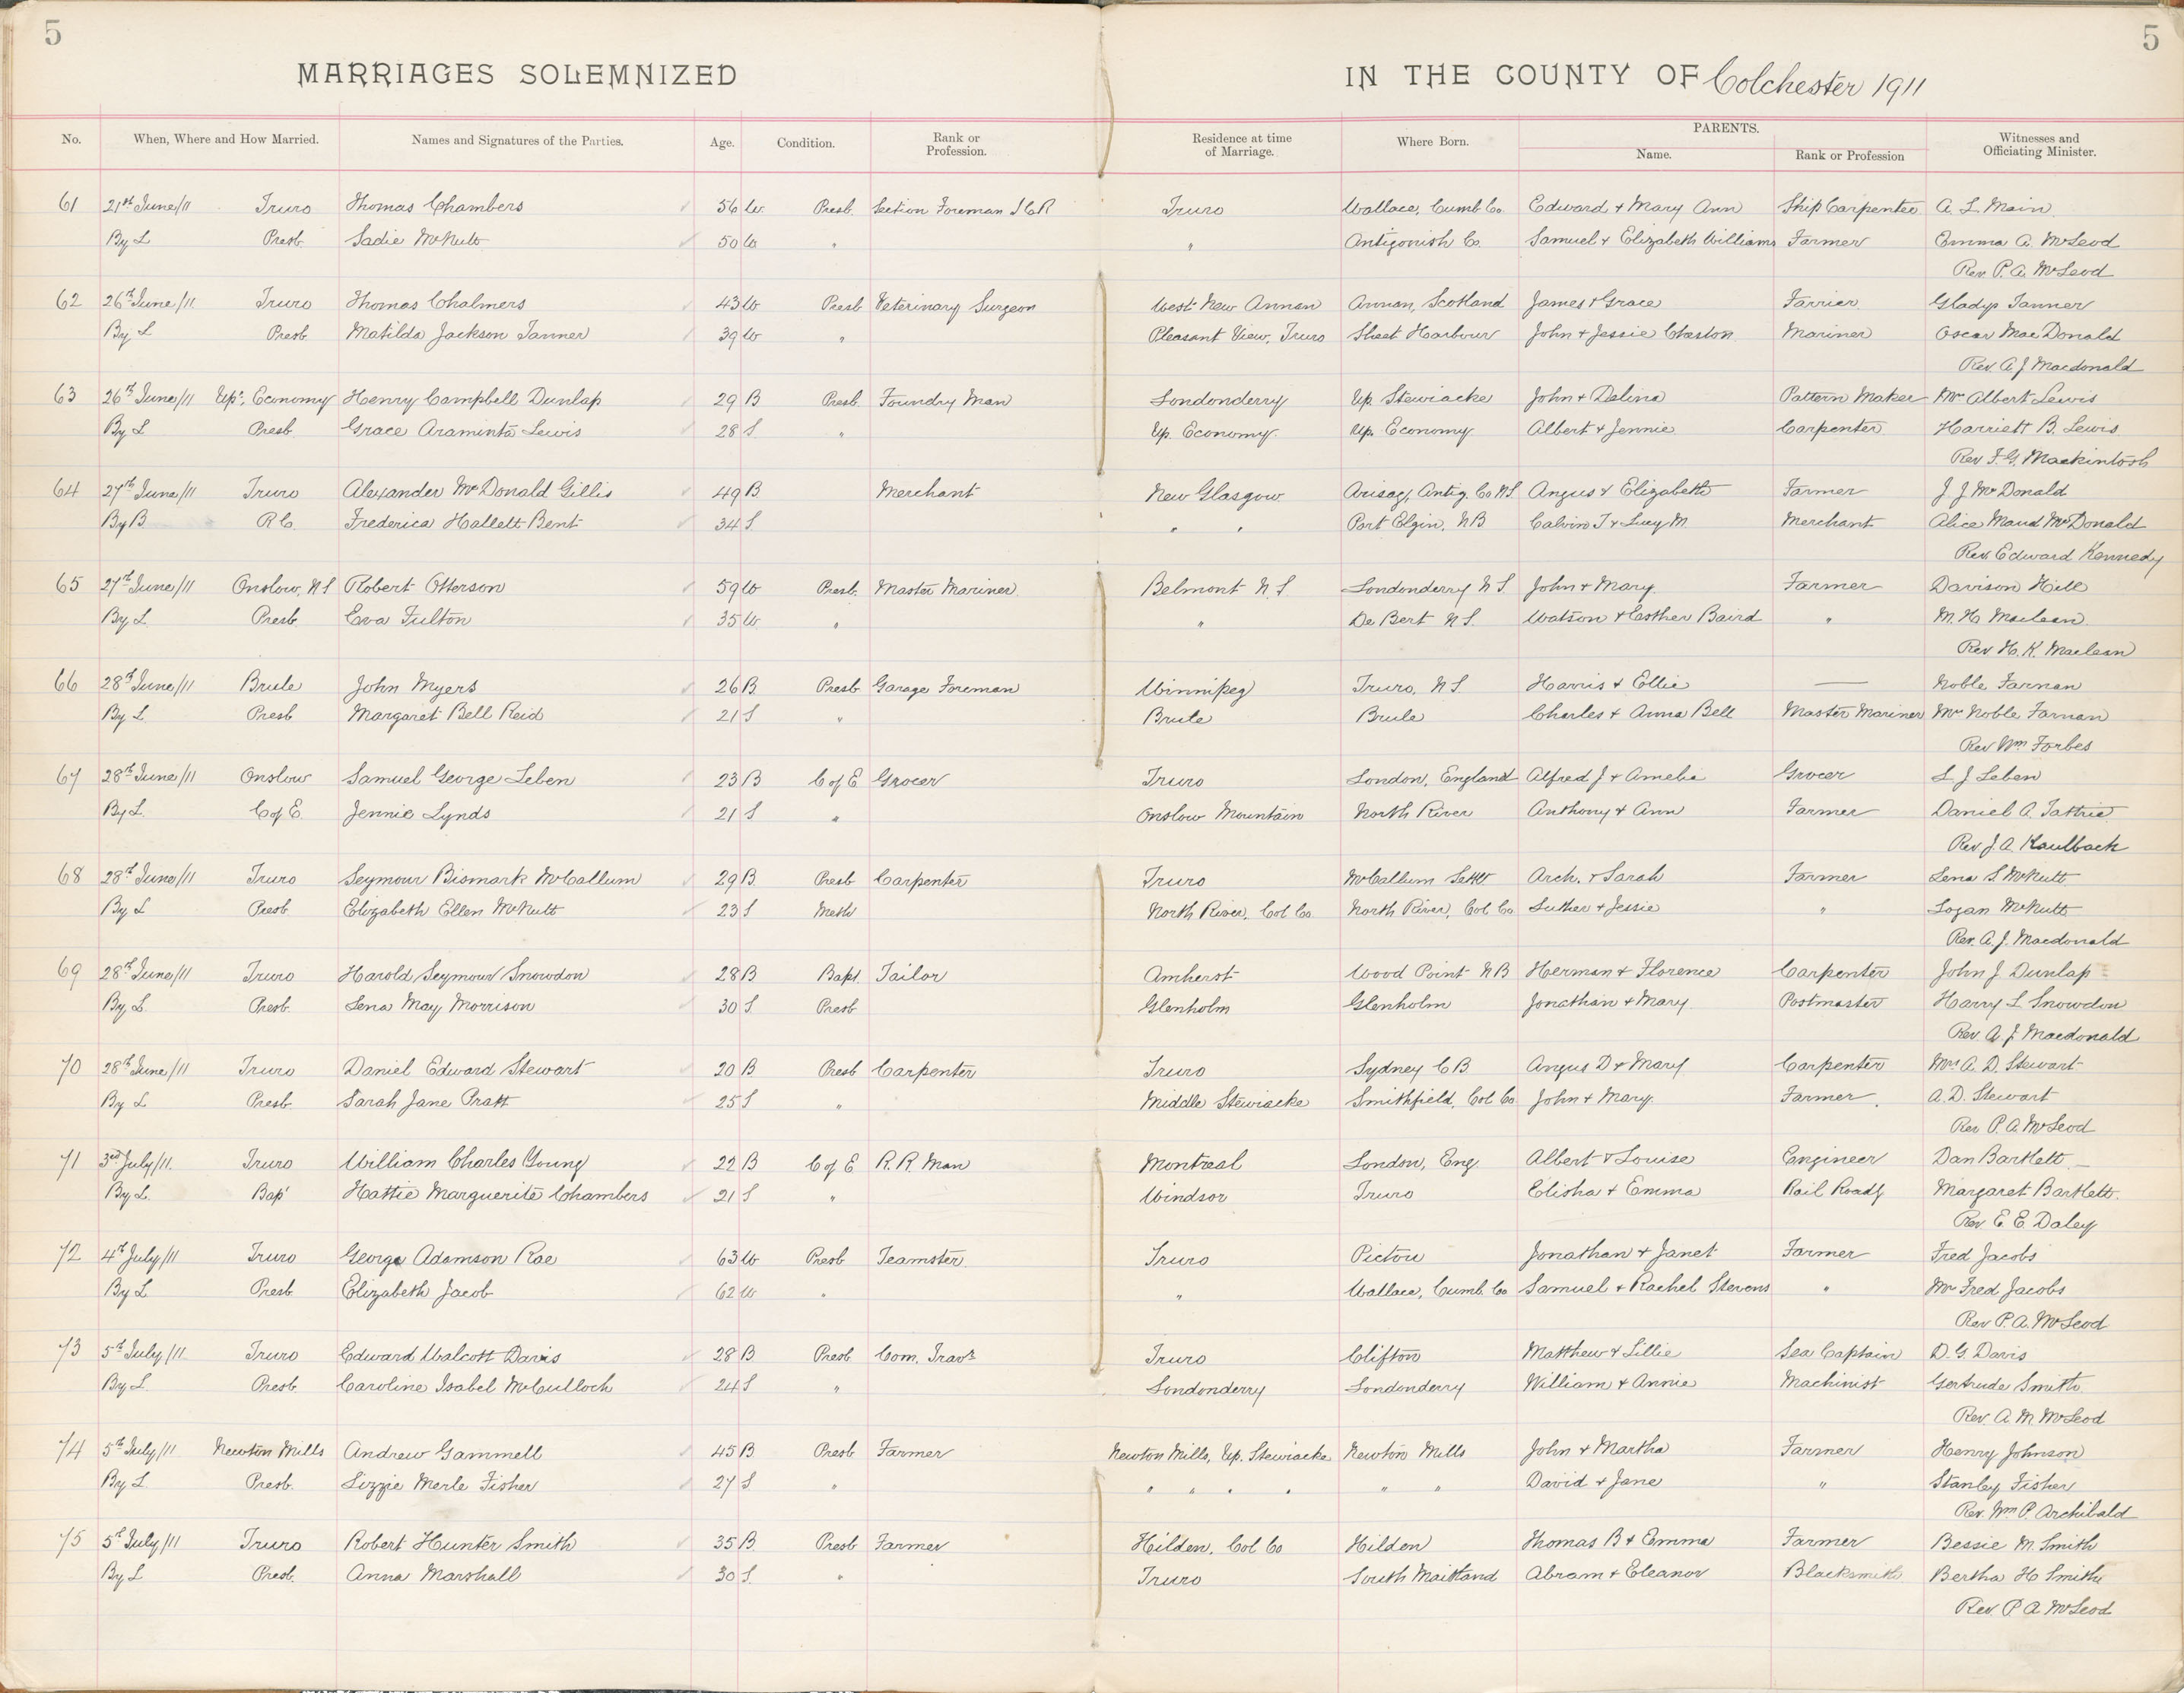 5 5
MARRIAGES SOLEMNIZED IN THE COUNTY OF Colchester 1911
No. When, Where and How Married. Names and Signatures of the Parties. Age. Condition. Rank or Profession. Residence at time of Marriage. Where Born. PARENTS. Name. Rank or Profession Witnesses and Officiating Minister.
61 21st June/11 Truro Thomas Chambers 56 W. Presb. Section Foreman I C R Truro Wallace, Cumb. Co. Edward + Mary Ann Ship Carpenter A. L. Main
By L Presb. Sadie McNutt 50 W " " Antigonish Co. Samuel + Elizabeth Williams Farmer Emma A. McLeod
Rev. P. A. McLeod
62 26th June/11 Truro Thomas Chalmers 43 W Presb Veterinary Surgeon West New Annan Annan, Scotland James + Grace Farrier Gladys Tanner
By L Presb Matilda Jackson Tanner 39 W " Pleasant View, Truro Sheet Harbour John + Jessie Cheston Mariner Oscar MacDonald
Rev. A J Macdonald
63 26th June/11 Upr. Economy Henry Campbell Dunlap 29 B Presb. Foundry Man Londonderry Up. Stewiacke John + Delina Pattern Maker Mrs Albert Lewis
By L Presb Grace Araminta Lewis 28 S " Up. Economy. Up. Economy Albert + Jennie Carpenter Harriett B. Lewis
Rev. F. G. Mackintosh
64 27th June/11 Truro Alexander McDonald Gillis 49 B Merchant New Glasgow Arisag, Antig. Co N S Angus + Elizabeth Farmer J J McDonald
By B R C. Frederica Hallett Bent 34 S " " Port Elgin, N B Calvin T + Lucy M Merchant Alice Maud McDonald
Rev. Edward Kennedy
65 27th June/11 Onslow, N S Robert Otterson 59 W Presb. Master Mariner Belmont N. S Londonderry N S. John + Mary Farmer Davison Hill
By L Presb. Eva Fulton 35 W. " " De Bert N S. Watson + Esther Baird " M. H. Maclean
Rev H. K. Maclean
66 28th June/11 Brule John Myers 26 B Presb Garage Foreman Winnipeg Truro, N S. Harris + Ellie — Noble Farnan
By L Presb Margaret Bell Reid 21 S " Brule Brule Charles + Anna Bell Master Mariner Mrs Noble Farnan
Rev Wm Forbes
67 28th June/11 Onslow Samuel George Leben 23 B C of E Grocer Truro London, England Alfred J + Amelia Grocer L J Leben
By L. C of E. Jennie Lynds 21 S " Onslow Mountain North River Anthony + Ann Farmer Daniel A. Tattrie
Rev J. A. Kaulback
68 28th June/11 Truro Seymour Bismark McCallum 29 B. Presb Carpenter Truro McCallum Settt Arch. + Sarah Farmer Lena S. McNutt
By L Presb. Elizabeth Ellen McNutt 23 S Meth North River, Col Co. North River, Col Co Luther + Jessie " Logan McNutt
Rev. A. J. Macdonald
69 28th June/11 Truro Harold Seymour Snowdon 28 B Bapt. Tailor Amherst Wood Point N B Herman + Florence Carpenter John J Dunlap
By L. Presb. Lena May Morrison 30 S. Presb Glenholm Glenholm Jonathan + Mary Postmaster Harry L Snowdon
Rev. A. J Macdonald
70 28th June/11 Truro Daniel Edward Stewart 20 B Presb Carpenter Truro Sydney C B Angus D + Mary Carpenter Mrs A. D. Stewart
By L Presb Sarah Jane Pratt 25 S " Middle Stewiacke Smithfield, Col Co John + Mary. Farmer. A. D. Stewart
Rev P. A. McLeod
71 3rd July/11. Truro William Charles Young 22 B C of E R. R. Man Montreal London, Eng Albert + Louise Engineer Dan Bartlett
By L. Bapt Hattie Marguerite Chambers 21 S " Windsor Truro Elisha + Emma Rail Roadg Margaret Bartlett.
Rev E. E. Daley
72 4th July/11 Truro George Adamson Rae 63 W Presb Teamster. Truro Pictou Jonathan + Janet Farmer Fred Jacobs
By L Presb Elizabeth Jacob 62 W " " Wallace, Cumb. Co Samuel + Rachel Stevens " Mrs Fred Jacobs
Rev P. A. McLeod
73 5th July/11 Truro Edward Walcott Davis 28 B Presb Com. Travr Truro Clifton Matthew + Lillie Sea Captain D. G Davis
By L. Presb. Caroline Isabel McCulloch 24 S " Londonderry Londonderry William + Annie Machinist Gertrude Smith.
Rev. A. M. McLeod
74 5th July/11 Newton Mills Andrew Gammell 45 B Presb Farmer Newton Mills, Up. Stewiacke Newton Mills John + Martha Farmer Henry Johnson
By L Presb. Lizzie Merle Fisher 27 S " " " " " " " David + Jane " Stanley Fisher
Rev. Wm P. Archibald
75 5th July/11 Truro Robert Hunter Smith 35 B Presb Farmer Hilden, Col Co Hilden Thomas B + Emma Farmer Bessie M. Smith
By L Presb. Anna Marshall 30 S. " Truro South Maitland Abram + Eleanor Blacksmith Bertha H Smith
Rev. P A McLeod